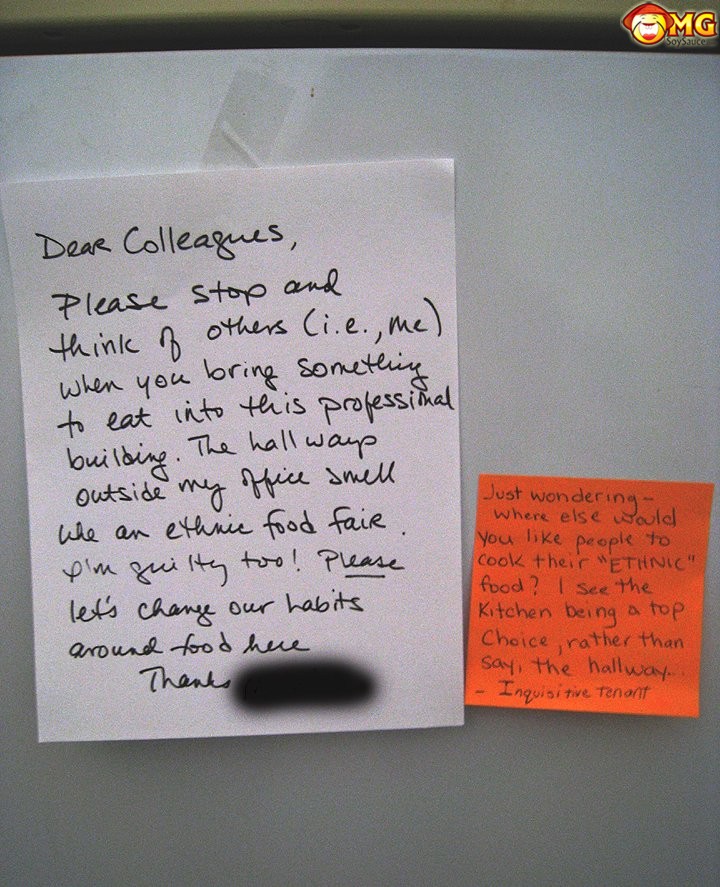 OMG
SoySauce
Dear Colleagues,
Please stop and
think of others (i.e., me)
when you bring something
to eat into this professional
building. The hallways
outside my office smell
like an ethnic food fair.
I'm guilty too! Please
let's change our habits
around food here
Thanks
Just wondering –
where else would
you like people to
cook their "ETHNIC"
food? I see the
Kitchen being a top
Choice, rather than
say, the hallway...
- Inquisitive Tenant